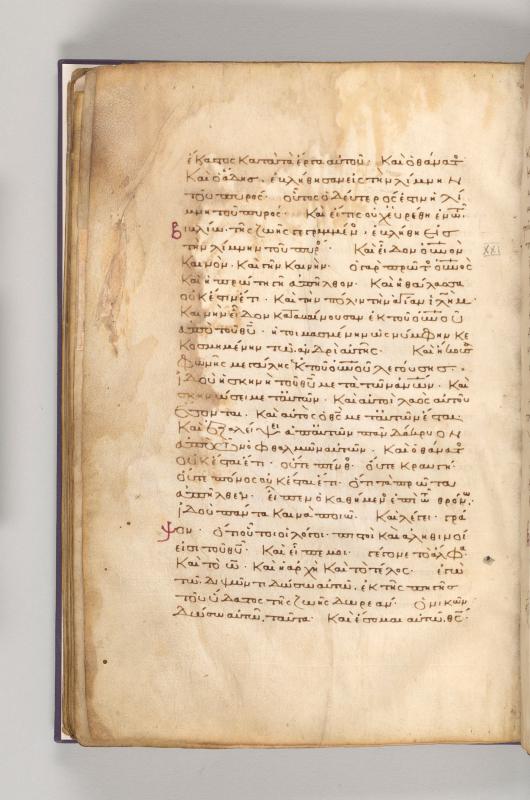 ἕκαστος κατὰ τὰ ἔργα αὐτοῦ· Καὶ ὁ θάνατος
Καὶ ὁ ἅδης, ἐβλήθησαν εἰς τὴν λίμνην
τοῦ πυρός· οὗτος ὁ δεύτερός ἐστιν ἡ λί
μνη τοῦ πυρός· Καὶ εἴ τις οὐχ εὑρέθη ἐν τῶ
βιβλίω τῆς ζωῆς γεγραμμένος, ἐβλήθη εἰς
τὴν λίμνην τοῦ πυρός· Καὶ εἶδον οὐνον
XXI
Καινὸν· Καὶ γῆν Καινήν· ὁ γὰρ πρῶτος οὐνος
Καὶ ἡ πρώτη γῆ ἀπῆλθον· Καὶ ἡ θάλασσα
οὐκ ἔστιν ἔτι· Καὶ τὴν πόλιν τὴν ἁγίαν ιλημ
Καινὴν εἶδον Καταβαίνουσαν ἐκ τοῦ οὐνου
ἀπὸ τοῦ θυ· ἡτοιμασμένην ὡς νύμφην κε
Κοσμημένην τῶ ἀνδρὶ αὐτῆς· Καὶ ἤκουσα
φωνῆς μεγάλης ἐκ τοῦ οὐνου λεγούσης·
ἰδοὺ ἡ σκηνὴ τοῦ θυ μετὰ τῶν ανων· Καὶ
σκηνώσει μετ' αὐτῶν· Καὶ αὐτοὶ λαὸς αὐτοῦ
ἔσονται· Καὶ αὐτὸς ὁ θς μετ' αὐτῶν ἔσται·
Καὶ ἐξαλείψει ἀπ' αὐτῶν πᾶν δάκρυον
ἀπὸ τῶν ὀφθαλμῶν αὐτῶν· Καὶ ὁ θάνατος
οὐκ ἔσται ἔτι· οὔτε πένθος· οὔτε Κραυγή·
οὔτε πόνος οὐκ ἔσται ἔτι· ὅτι τὰ πρῶτα
ἀπῆλθεν· εἶπεν ὁ Καθήμενος ἐπὶ τῶ θρόνω,
ἰδοὺ πάντα Καινὰ ποιῶ· Καὶ λέγει· γρά
ψον· ὅτι οὗτοι οἱ λόγοι πιστοὶ Καὶ ἀληθινοί
εἰσι τοῦ θυ· Καὶ εἶπε μοι· γέγονε τὸ ἄλφα
Καὶ τὸ ω· Καὶ ἡ ἀρχὴ Καὶ τὸ τέλος· ἐγὼ
τῶ διψῶντι δώσω αὐτῶ, ἐκ τῆς πηγῆς
τοῦ ὕδατος τῆς ζωῆς δωρεάν· ὁ νικῶν
δώσω αὐτῶ, ταῦτα· Καὶ ἔσομαι αὐτῶ, θς·